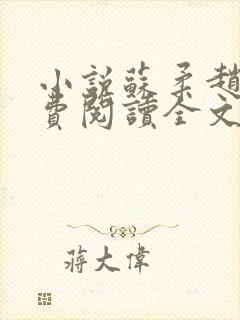 小說蘇柔趙
費閱讀全文
蔣大偉